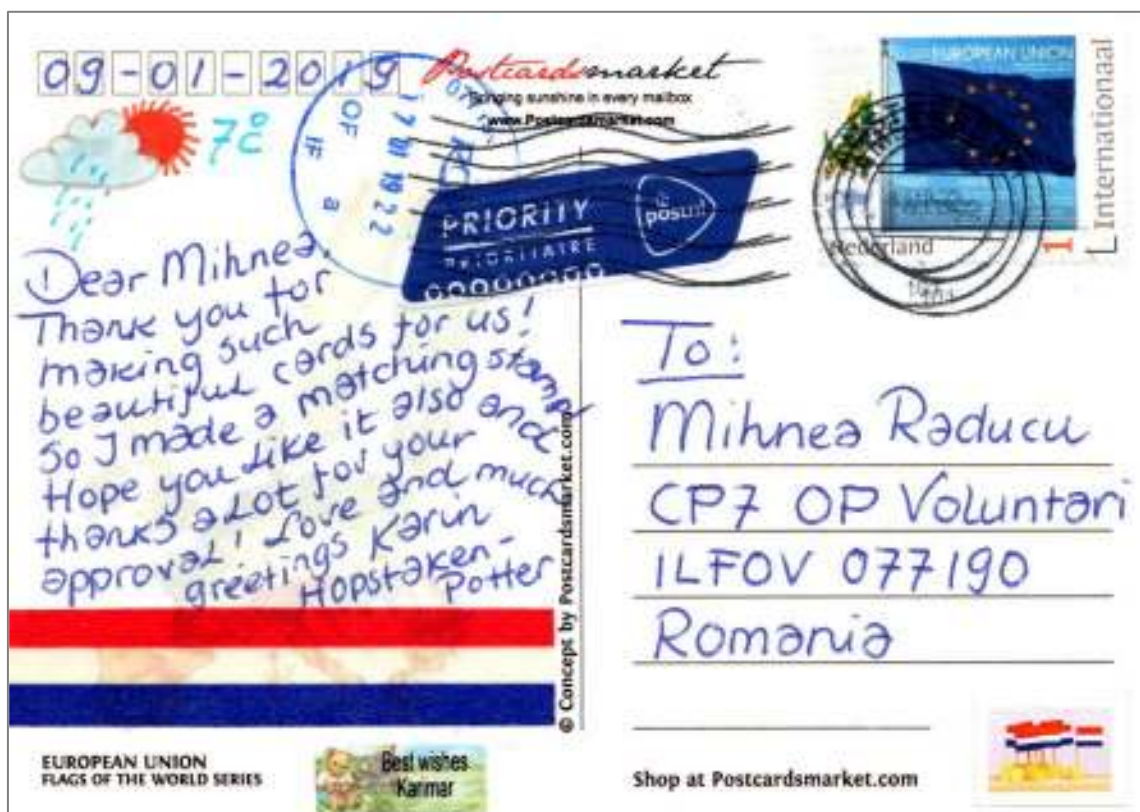 09-01-2019
7°C
Postcardsmarket
Bringing sunshine in every mailbox
www.Postcardsmarket.com
17 01 19 22
OF IF a
PRIORITY
PRIORITAIRE
postnl
EUROPEAN UNION
Nederland
1
Internationaal
Dear Mihnea,
Thank you for
making such
beautiful cards for us!
So I made a matching stamp
Hope you like it also and
thanks a lot for your
approval! Love and much
greetings Karin
Hopstaken-
Potter
© Concept by Postcardsmarket.com
To:
Mihnea Raducu
CP7 OP Voluntari
ILFOV 077190
Romania
EUROPEAN UNION
FLAGS OF THE WORLD SERIES
Best wishes
Karimar
Shop at Postcardsmarket.com